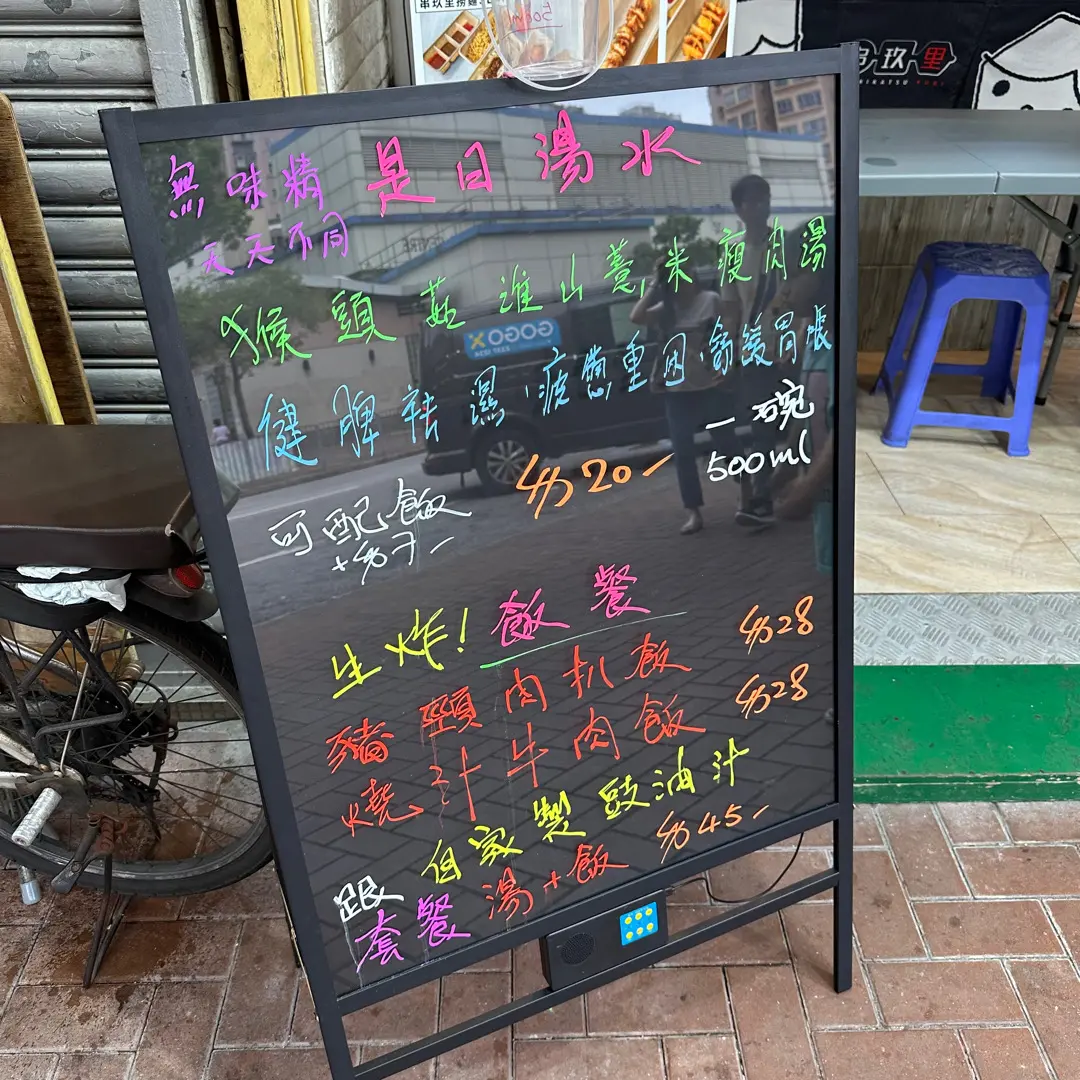 串玖里撈麵
500ml
串玖里
無味精
是日湯水
天天不同
猴頭菇淮山薏米瘦肉湯
健脾祛濕,疲憊重困,
一碗
500ml
$20-
可配飯
+$7-
生炸! 飯餐
豬頸肉扒飯 $28
燒汁牛肉飯 $28
跟自家製豉油汁
套餐 湯+飯 $45-
GOGOX